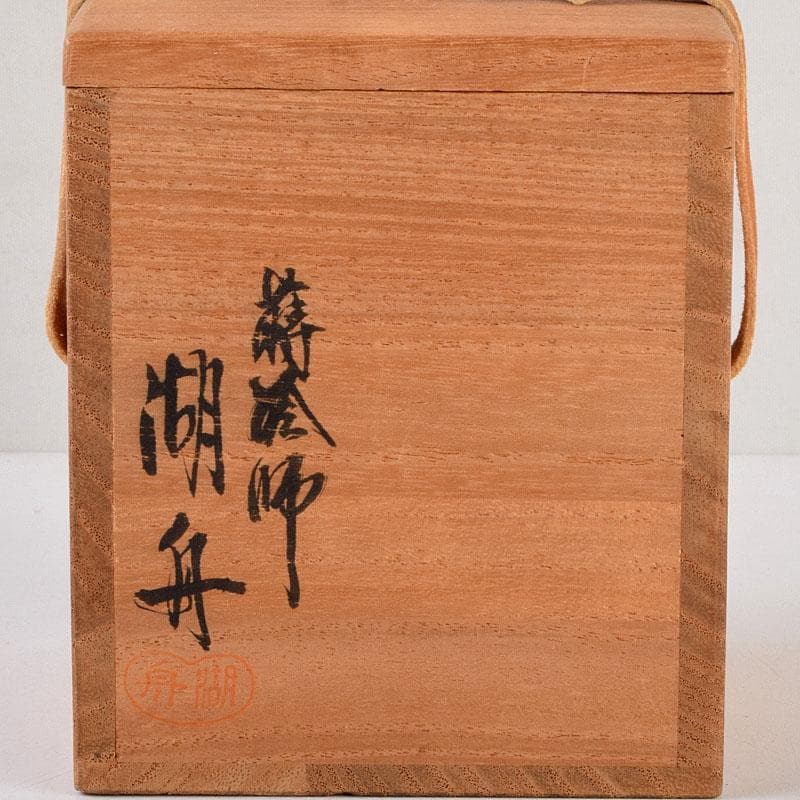 蒔絵師
湖舟
湖舟